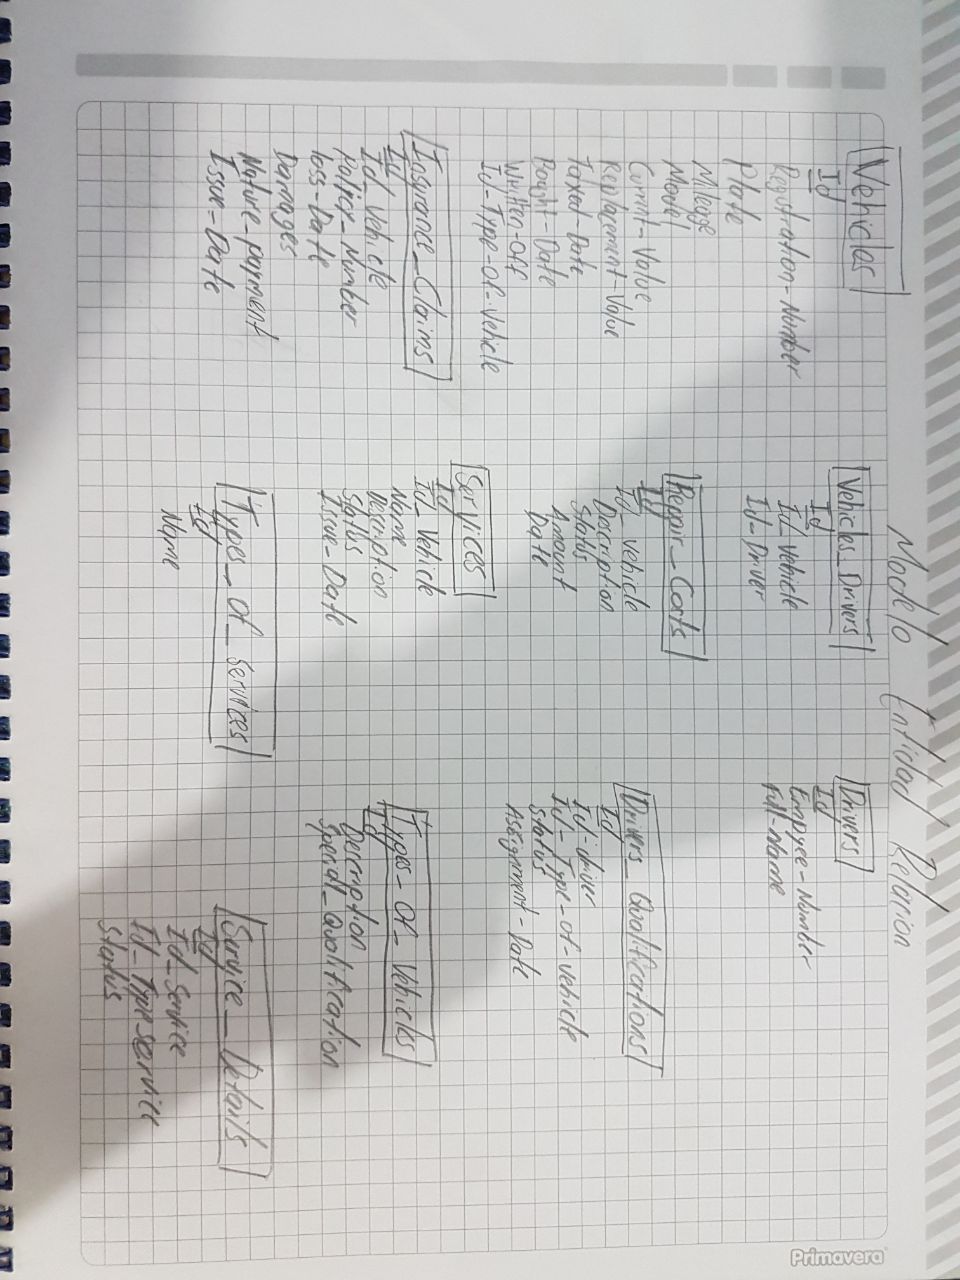 Modelo Entidad Relacion
Vehicles
Id
Registration-Number
Plate
Mileage
Model
Current-Value
Replacement-Value
Taxed-Date
Bought-Date
Written-Off
Id-Type-Of-Vehicle
Insurance_Claims
Id
Id_Vehicle
Policy-Number
loss-Date
Damages
Nature-payment
Issue-Date
Vehicles_Drivers
Id
Id_Vehicle
Id-Driver
Repair_Costs
Id
Id_vehicle
Description
Status
Amount
Date
Services
Id
Id_Vehicle
Name
Description
Status
Issue-Date
Types_of_services
Id
Name
Drivers
Id
Full-Name
Drivers_Qualifications
Id
Id-driver
Id-Type-of-vehicle
Status
Assignment-Date
Types-Of-Vehicles
Id
Description
Special_Qualification
Service_Details
Id
Id_Service
Id_Type-service
Status
Primavera